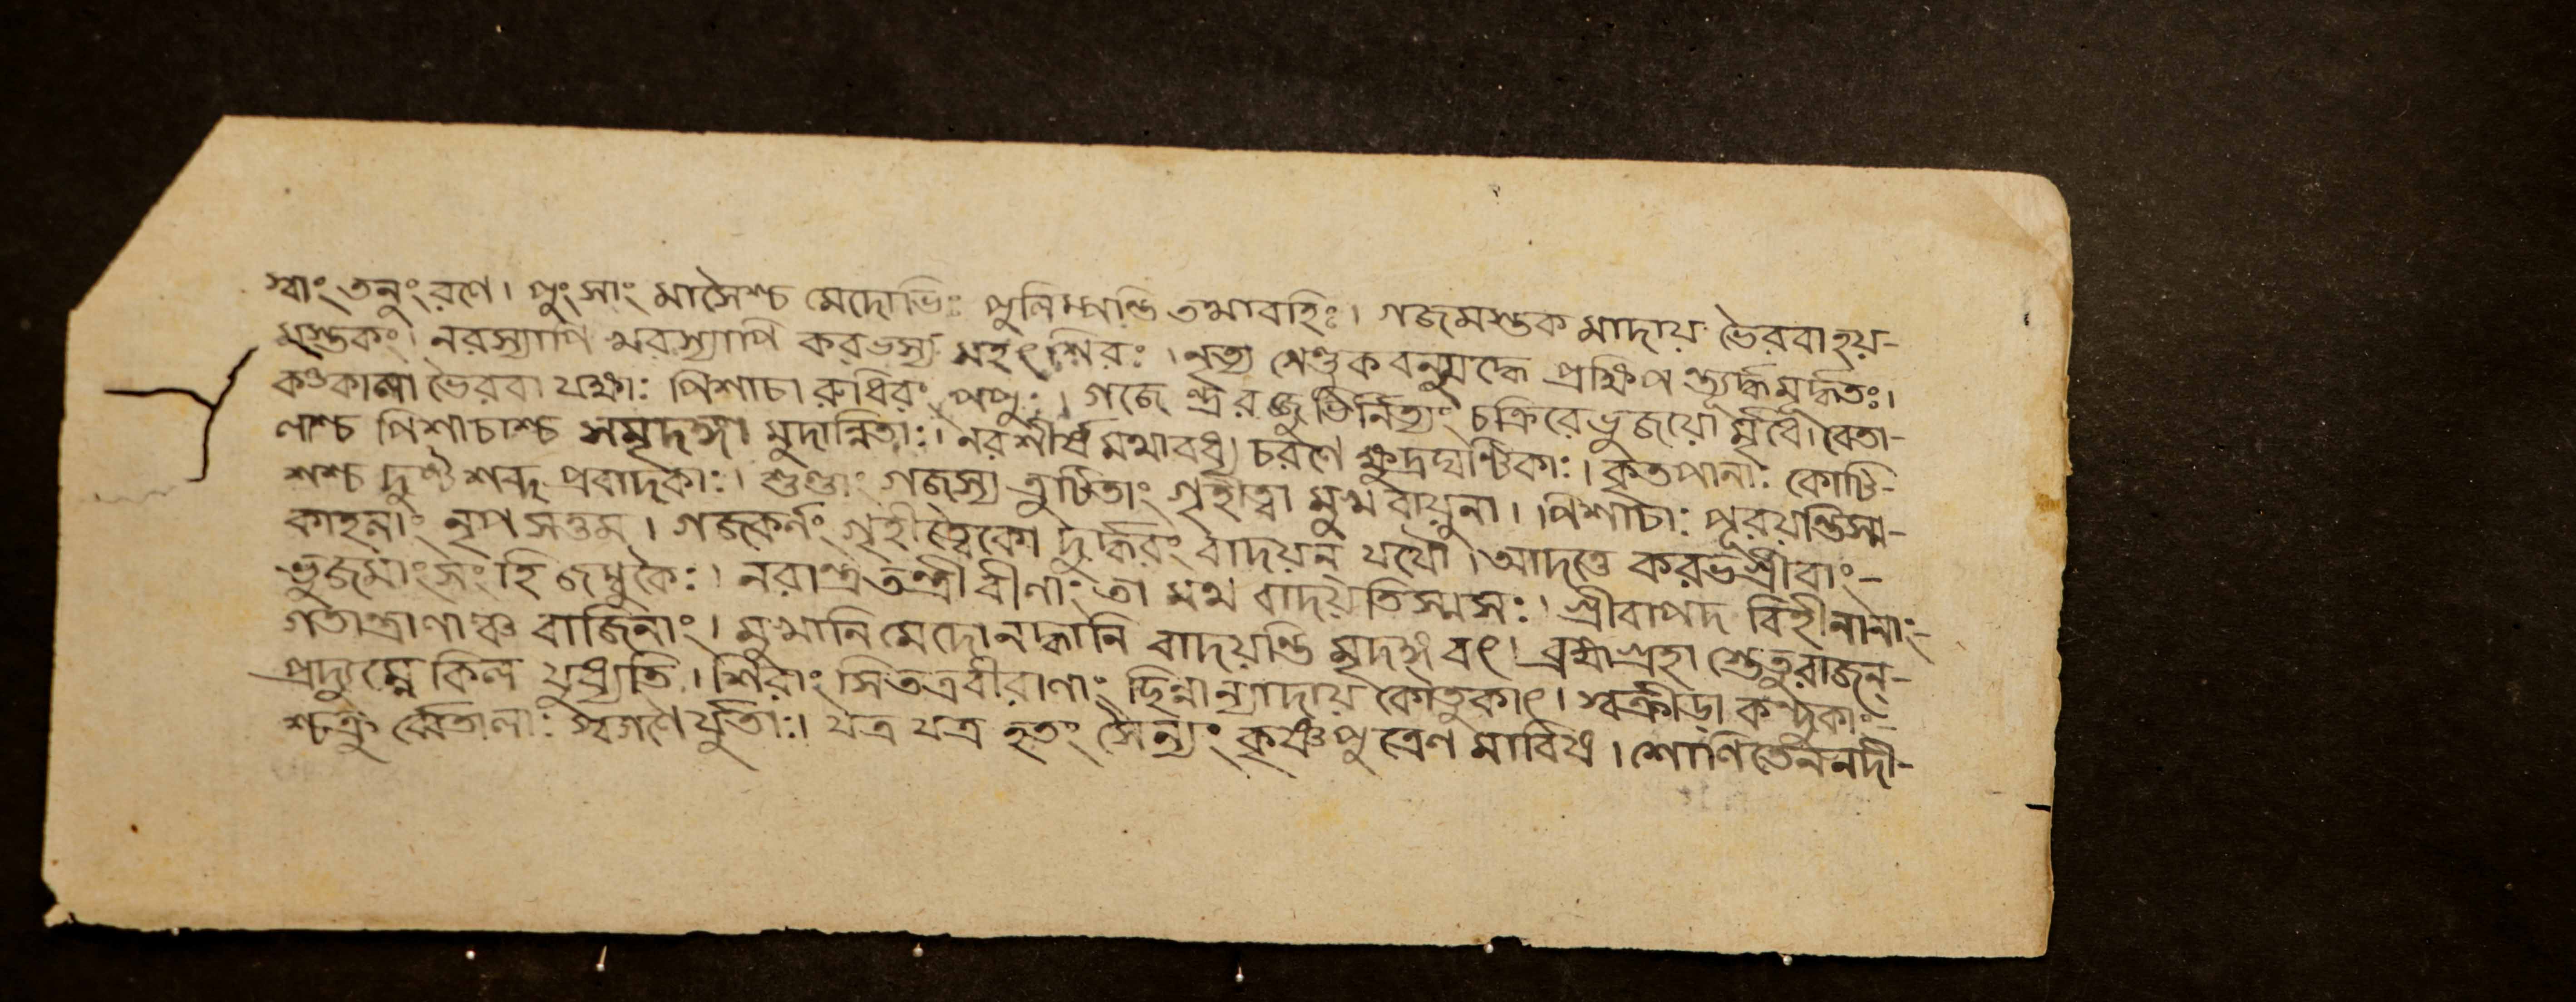 স্বাং তনুং রণে। পুংসাং মাসৈশ্চ মেদোভিঃ পুলিম্পন্তি তথাবহিঃ। গজমস্তক মাদায় ভৈরবা হয়-
মস্তকং। নরস্যাপি খরস্যাপি করভস্য মহৎ শিরঃ। নৃত্য প্রক্ষিপ ন্ত্যূর্দ্ধমূর্দ্ধতঃ।
ভৈরবা যক্ষাঃ পিশাচা রুধিরং পপুঃ। গজেন্দ্র রজ্জুভির্নিত্যং চক্রিরে ভুজয়ো র্মৃধে। বেতা-
লাশ্চ পিশাচাশ্চ সমৃদঙ্গা মুদান্নিতাঃ। নরশীর্ষ মথাবধ্য চরণে ক্ষুদ্রঘণ্টিকাঃ। কৃতপানাঃ কোটি-
শশ্চ দুষ্ট শব্দ প্রবাদকাঃ। শুণ্ডাং গজস্য ত্রুটিতাং গৃহীত্বা মুখ বায়ুনা। পিশাচাঃ পূরয়ন্তিস্ম-
কাহলাং নৃপ সত্তম। গজকর্নং গৃহীত্বৈকো দুর্দ্ধরং বাদয়ন্ যযৌ। আদত্তে করভগ্রীবাং-
ভুজমাংসং হি জম্বুকৈঃ। নরান্ত্রতন্ত্রী বীণাং তা মথ বাদয়তিস্মসঃ। গ্রীবাপদ বিহীনানাং-
গতান্ত্রাণাঞ্চ বাজিনাং। মুখানি মেদোনদ্ধানি বাদয়ন্তি মৃদঙ্গ বৎ। ব্রহ্মগ্রহা স্তেতুরাজন্-
প্রদ্যুম্নে কিল যুধ্যতি। শিরাংসিতত্রবীরাণাং ছিন্নান্যাদায় কৌতুকাৎ। স্বক্রীড়া কন্দুকাং-
শ্চক্রু র্ব্বেতালাঃ স্বগণৈর্যুতাঃ। যত্র যত্র হৃতং সৈন্যং কৃষ্ণপুত্রেণ মারিষ। শোণিতেননদী-